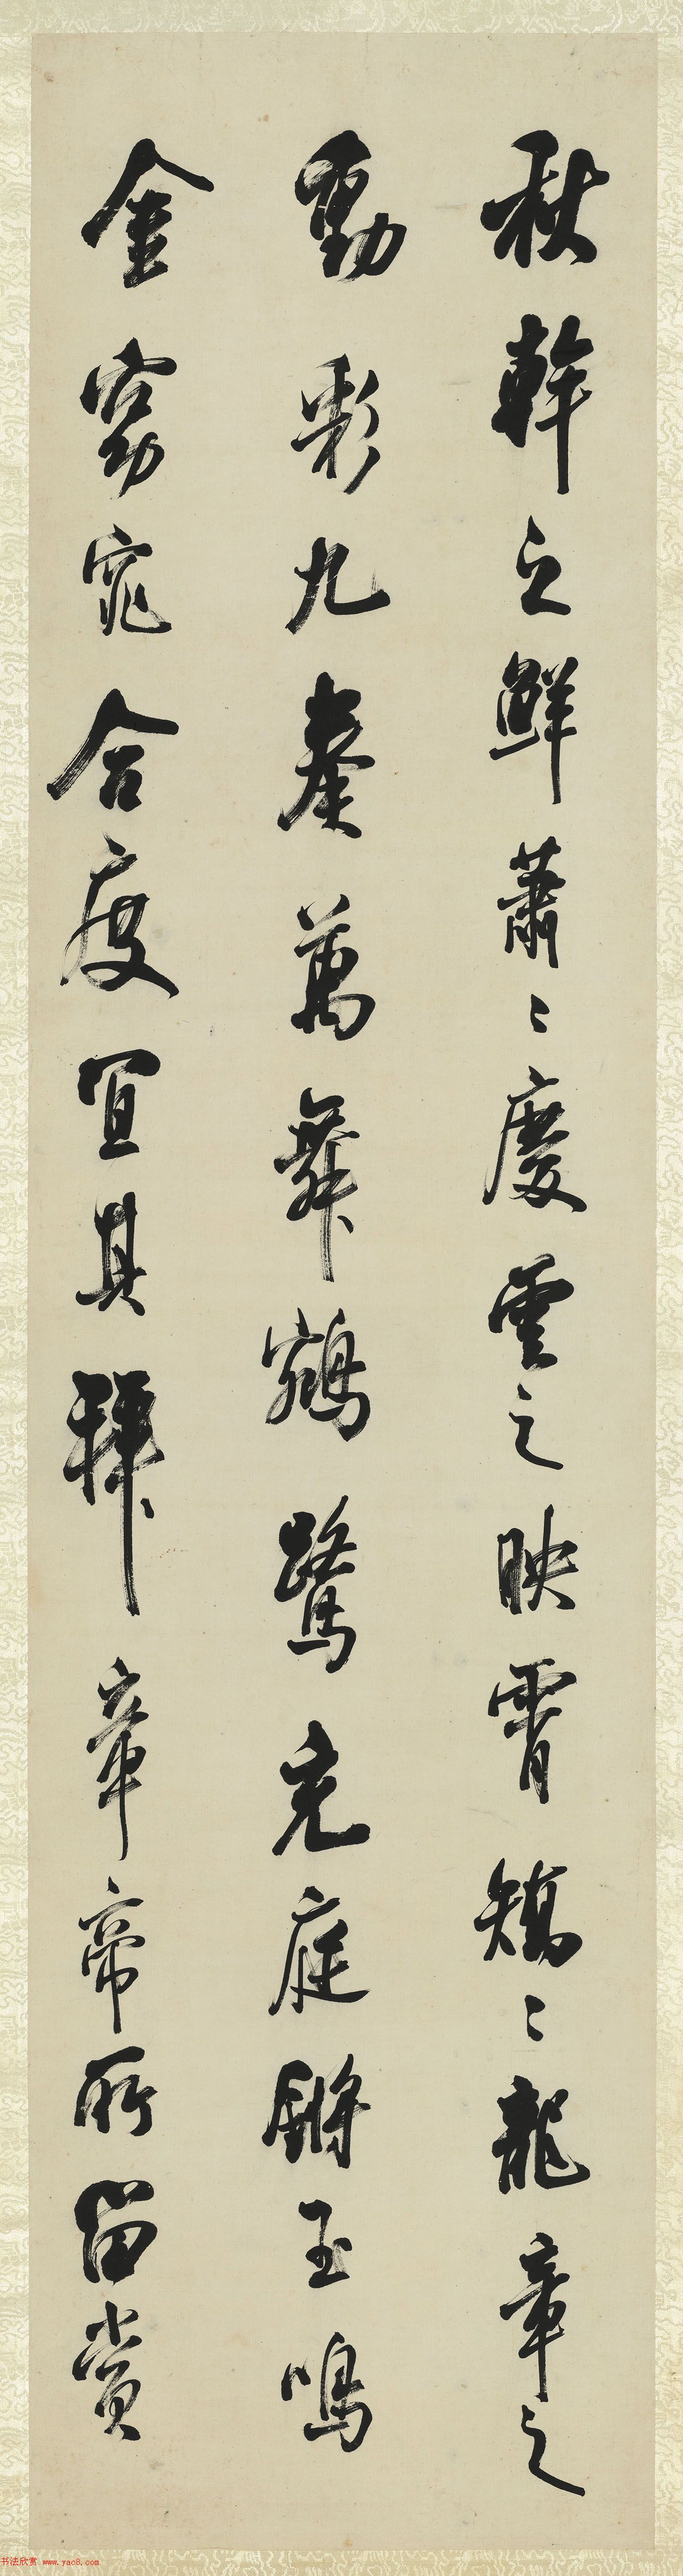 秋幹之鮮蕭〻慶雲之映霄矯〻龍章之
動彩九奏萬舞鶴鷺充庭鏘玉鳴
金窈窕合度宜其稱章帝所留賞
书法欣赏 www.yac8.com